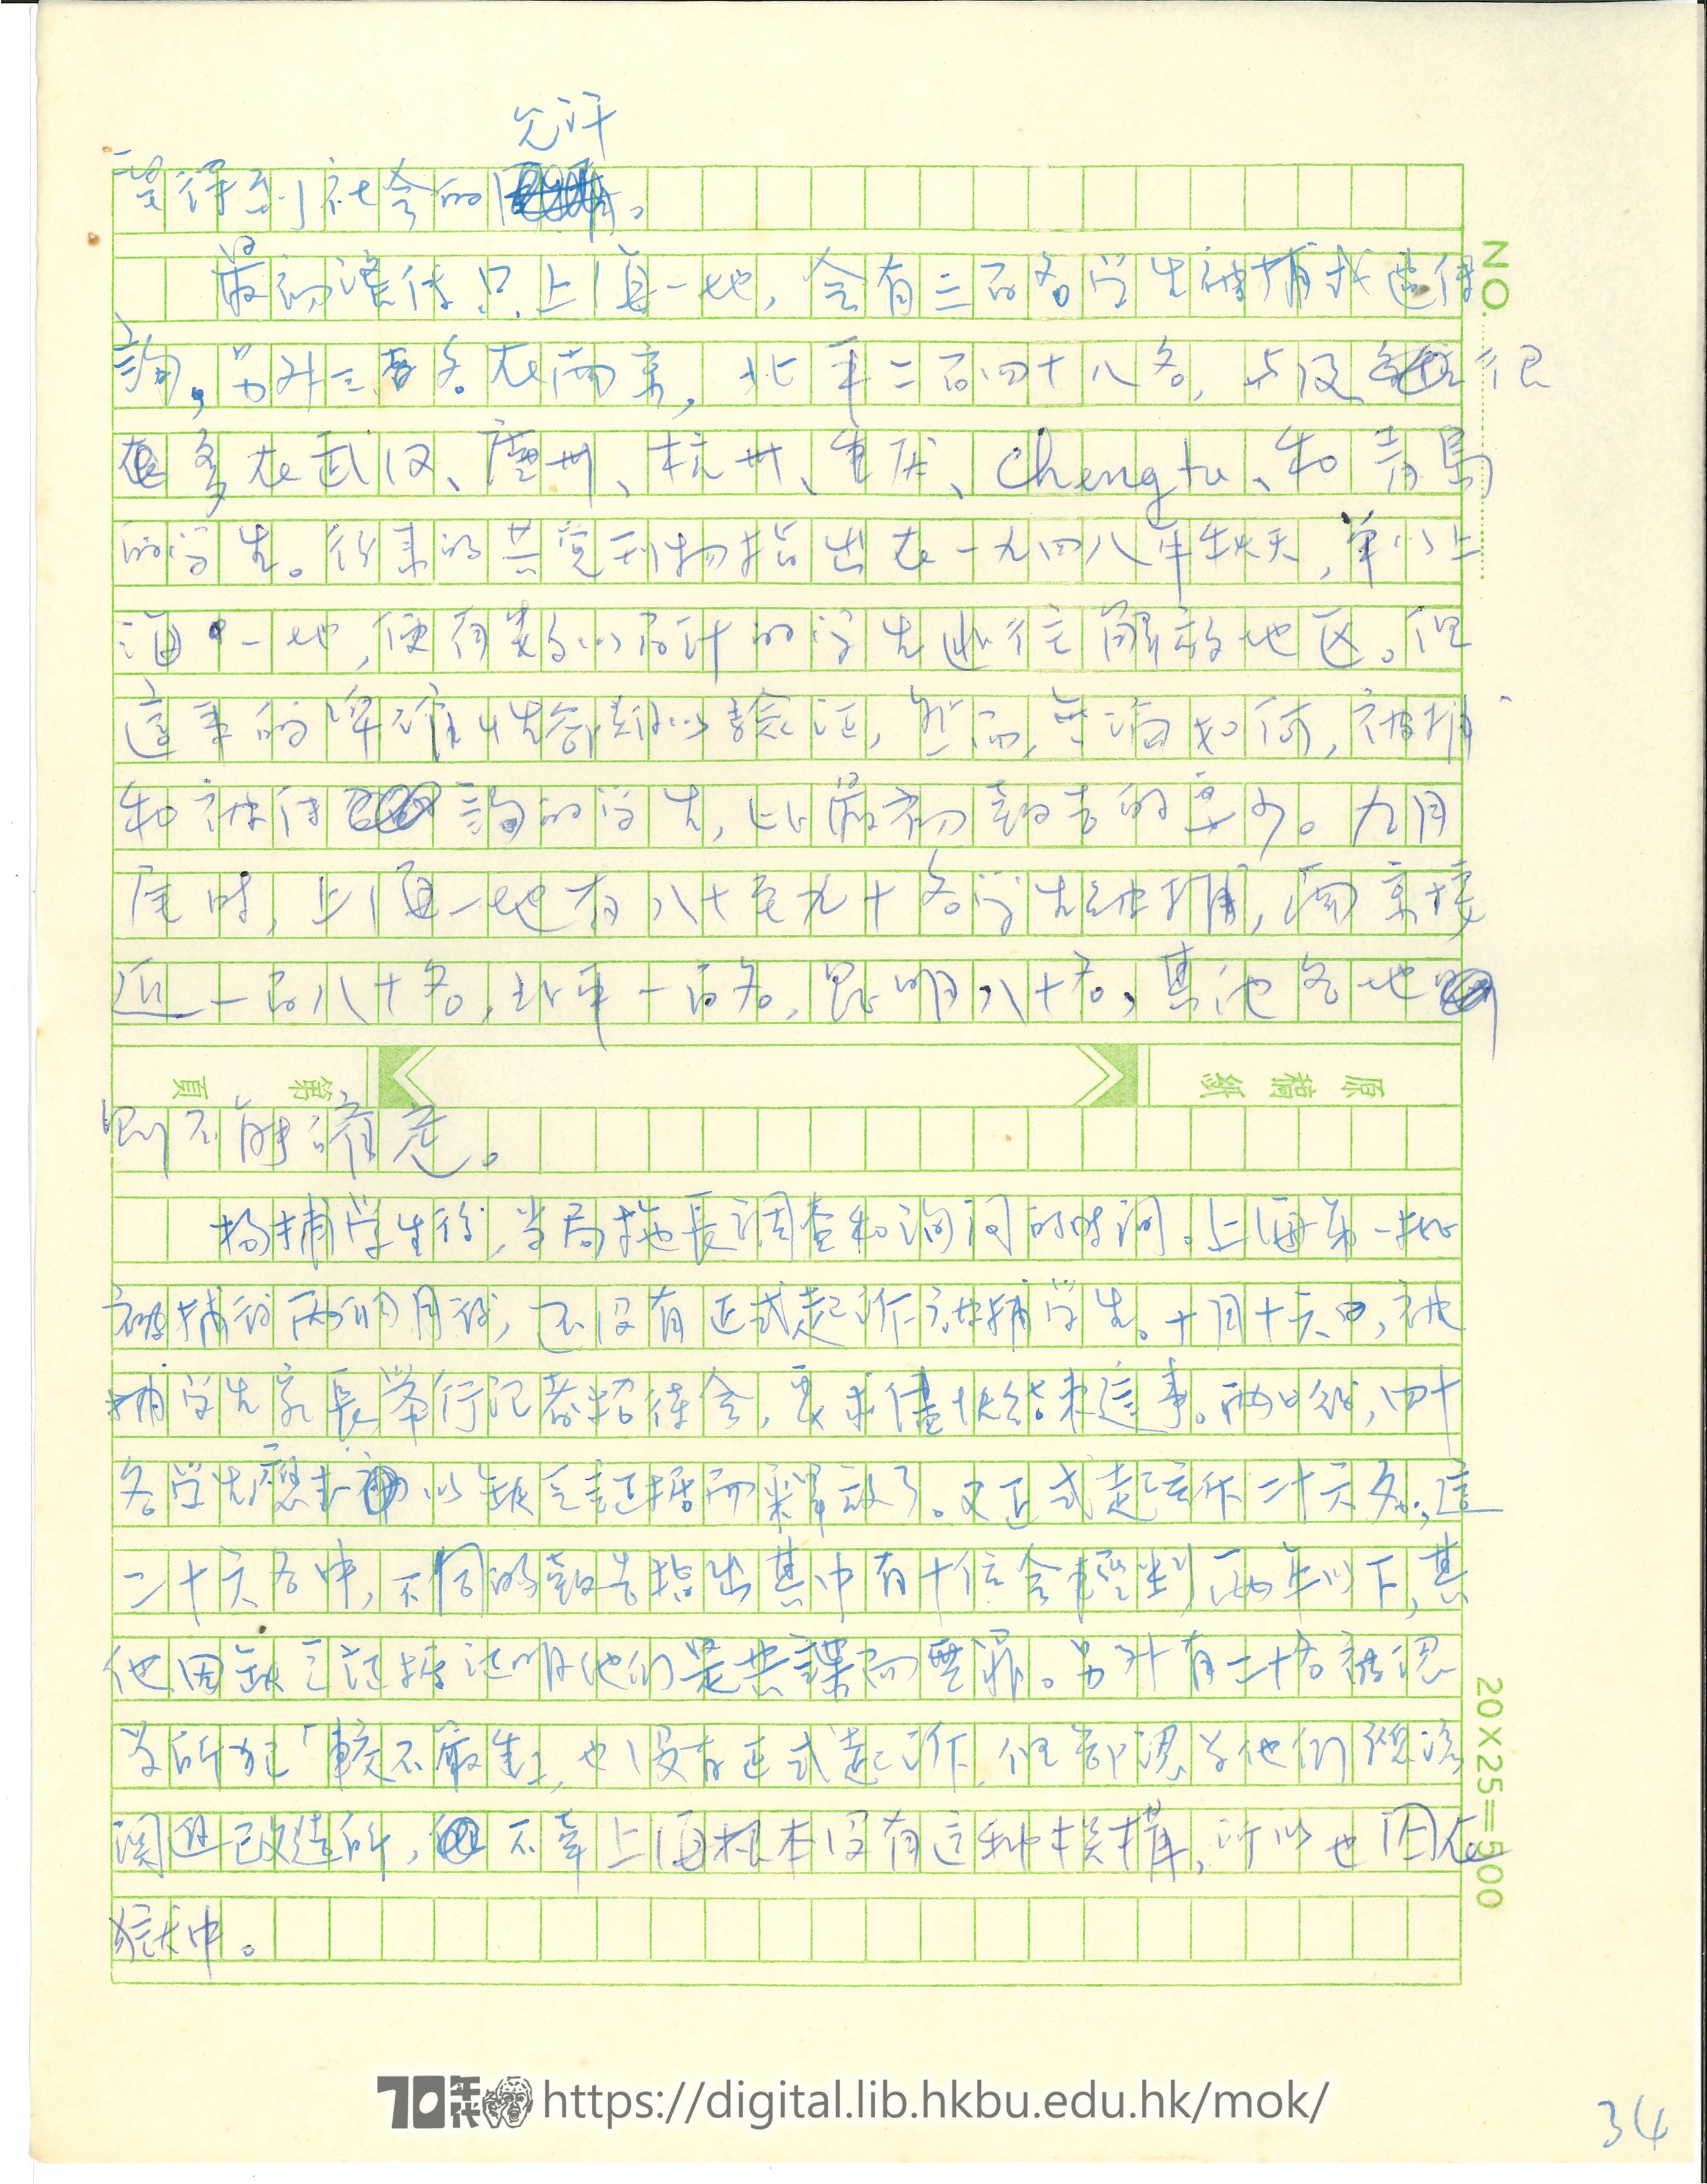 允许
望得到社会的。
最初谣传只上海一地，会有三百名学生被捕或遭传
詢，另外三百名在南京，北平二百四十八名，与及很
多在武汉、廣州、杭州、重庆、Chengtu、和青島
的学生。後來的共党刊物指出在一九四八年秋天，单以上
海一地，便有数以百计的学生逃往解放地区。但
這事的準確性卻難以驗证，然而，無論如何，被捕
和被传詢的学生，比最初報告的要少。九月
尾时，上海一地有八十至九十名学生被捕，南京接
近一百八十名，北平一百名，昆明八十名，其他各地
則不能確定。
拘捕学生後，当局拖長调查和询问的时间。上海第一批
被捕後两個月後，还没有正式起诉被捕学生。十月十六日，被
捕学生家長举行记者招待会，要求儘快结束這事。兩日後，四十
名学生以缺乏証據而释放了。又正式起诉二十六名，這
二十六名中，不同的報告指出其中有十位会輕判兩年以下，其
他因缺乏证據证明他们是共諜而無罪。另外有二十名被認
为所犯「較不嚴重」，也没有正式起诉，但卻認为他们須
改造所，不幸上海根本没有这种機構，所以也囚在
獄中。
NO.
原稿紙
第 頁
20×25=500
70年代 https://digital.lib.hkbu.edu.hk/mok/
34